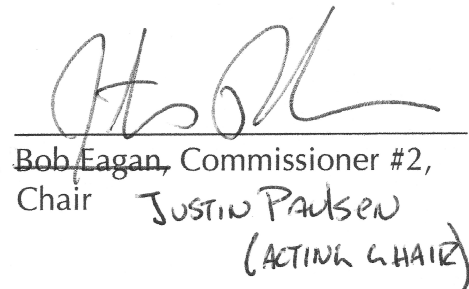 Bob Eagan, Commissioner #2,
Chair Justin Paulsen
(Acting Chair)